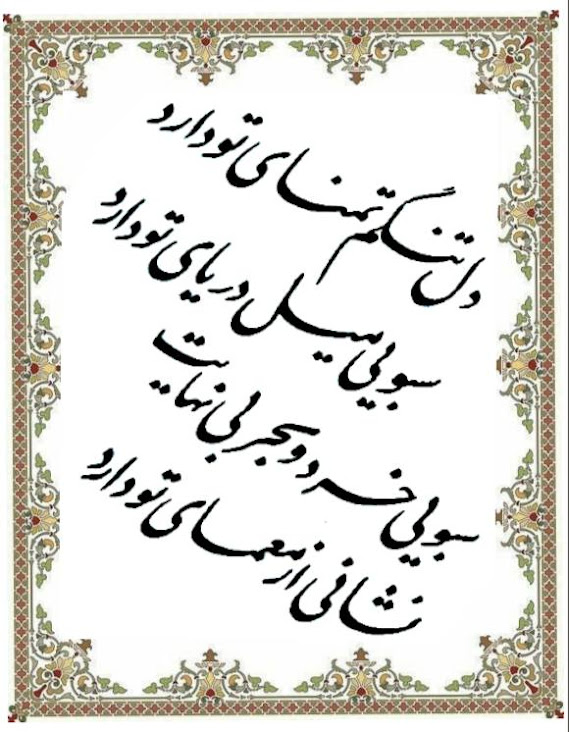 دل تنگم تمنای تو دارد
سبویی میل دریای تو دارد
سبویی خرد و بحر بی نهایت
نشانی از معمای تو دارد